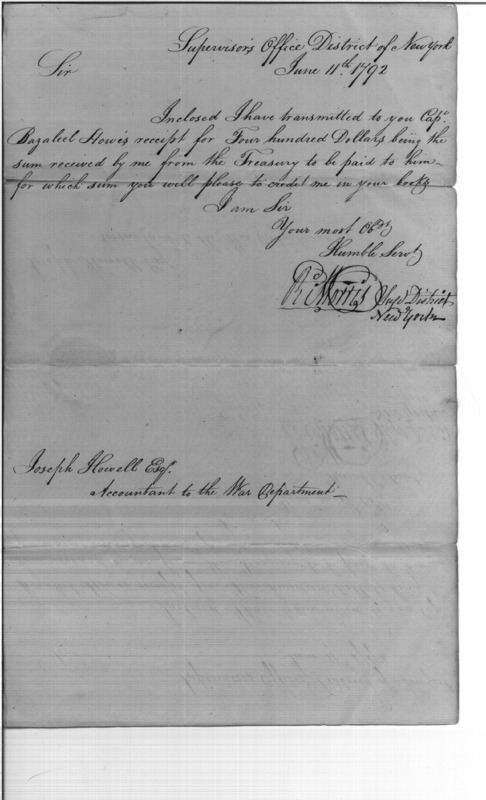 Supervisor's Office District of New York
June 11th. 1792
Sir
Inclosed I have transmitted to you Capt.
Bazaleel Howe's receipt for Four hundred Dollars being the
sum received by me from the Treasury to be paid to him—
for which sum you will please to credit me in your books
I am Sir
Your most Obdt
Humble Servt
Rd Morris Supr District
New York
Joseph Howell Esqr.
Accountant to the War Department—